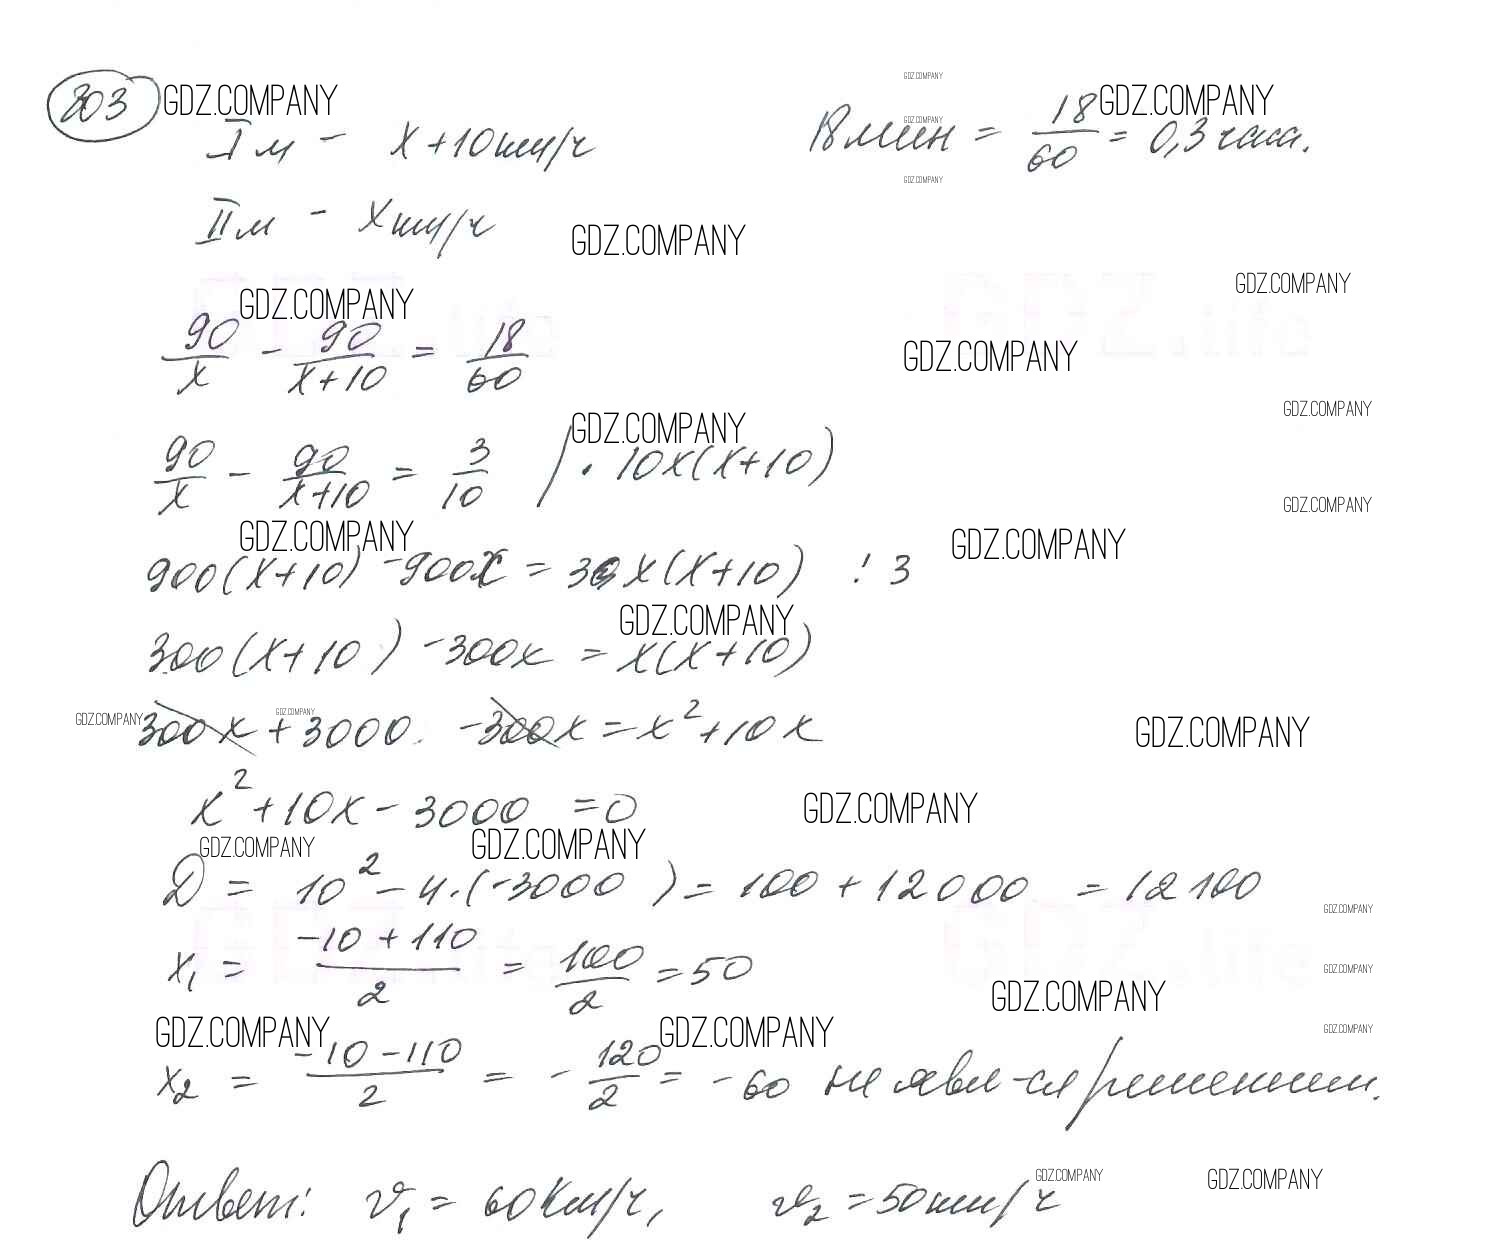 803 GDZ.COMPANY
GDZ.COMPANY
GDZ.COMPANY
I м - x + 10 км/ч 18 мин = 18/60 = 0,3 часа.
GDZ.COMPANY
GDZ.COMPANY
II м - x км/ч
GDZ.COMPANY
GDZ.COMPANY
GDZ.COMPANY
90/x - 90/(x+10) = 18/60
GDZ.COMPANY
GDZ.COMPANY
GDZ.COMPANY
90/x - 90/(x+10) = 3/10 | · 10x(x+10)
GDZ.COMPANY
GDZ.COMPANY
GDZ.COMPANY
900(x+10) - 900x = 3x(x+10) : 3
GDZ.COMPANY
300(x+10) - 300x = x(x+10)
GDZ.COMPANY
GDZ.COMPANY
GDZ.COMPANY
300x + 3000 - 300x = x² + 10x
x² + 10x - 3000 = 0
GDZ.COMPANY
GDZ.COMPANY
GDZ.COMPANY
D = 10² - 4·(-3000) = 100 + 12000 = 12100
GDZ.COMPANY
x₁ = (-10 + 110)/2 = 100/2 = 50
GDZ.COMPANY
GDZ.COMPANY
GDZ.COMPANY
GDZ.COMPANY
GDZ.COMPANY
x₂ = (-10 - 110)/2 = - 120/2 = - 60 не явл-ся решением.
GDZ.COMPANY
GDZ.COMPANY
Ответ: v₁ = 60 км/ч, v₂ = 50 км/ч